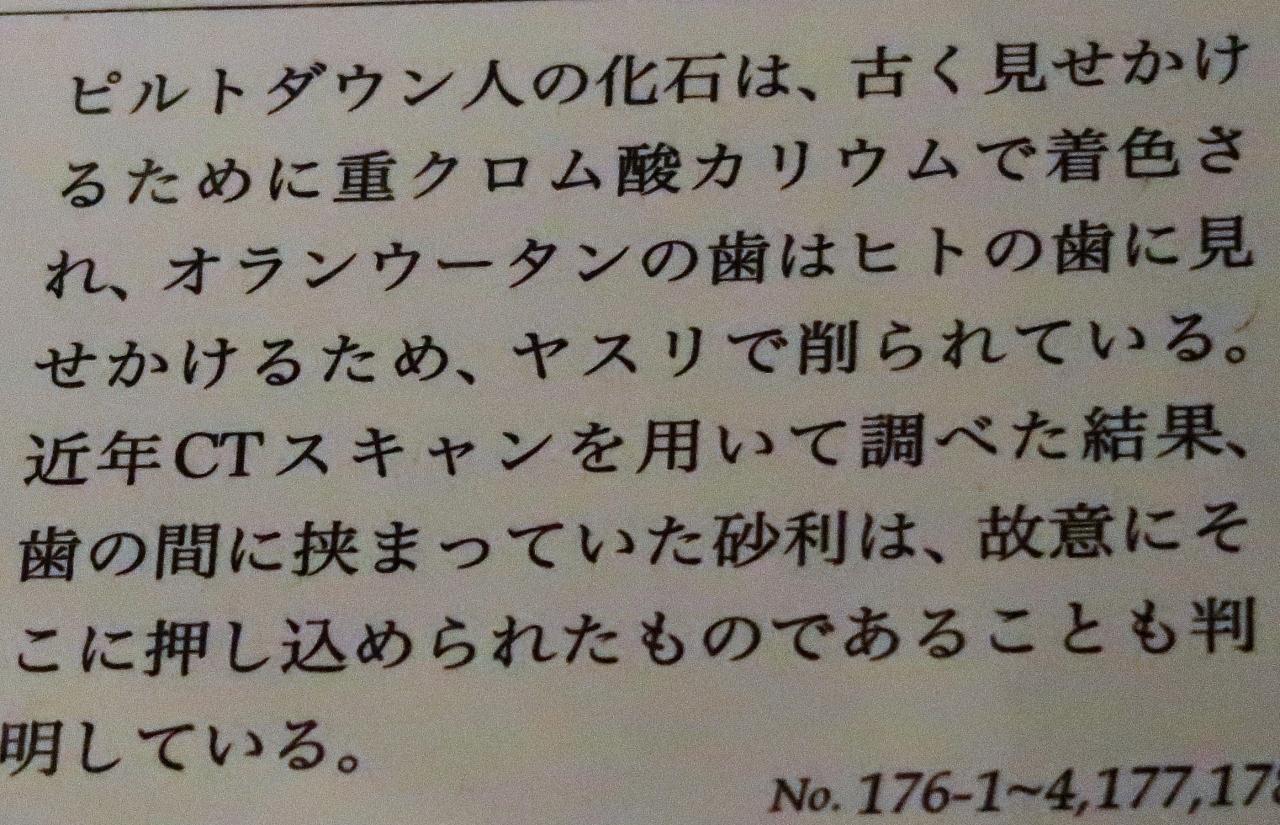 ピルトダウン人の化石は、古く見せかけ
るために重クロム酸カリウムで着色さ
れ、オランウータンの歯はヒトの歯に見
せかけるため、ヤスリで削られている。
近年CTスキャンを用いて調べた結果、
歯の間に挟まっていた砂利は、故意にそ
こに押し込められたものであることも判
明している。
No. 176-1~4,177,178